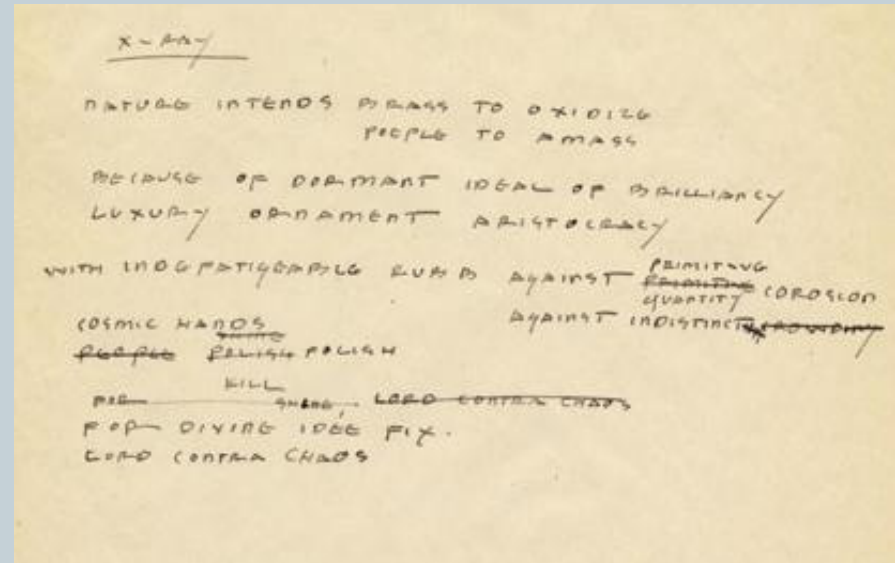 X-RAY
NATURE INTENDS BRASS TO OXIDIZE
PEOPLE TO AMASS
BECAUSE OF DORMANT IDEAL OF BRILLIANCY
LUXURY ORNAMENT ARISTOCRACY
PRIMITIVE
WITH INDEFATIGEABLE RUBB AGAINST PRIMITIVE COROSION
QUANTITY
AGAINST INDISTINCT CROWDINY
COSMIC HANDS
SHINE
PEOPLE POLISH POLISH
KILL
FOR SHINE, LORD CONTRA CHAOS
FOR DIVINE IDEE FIX.
LORD CONTRA CHAOS